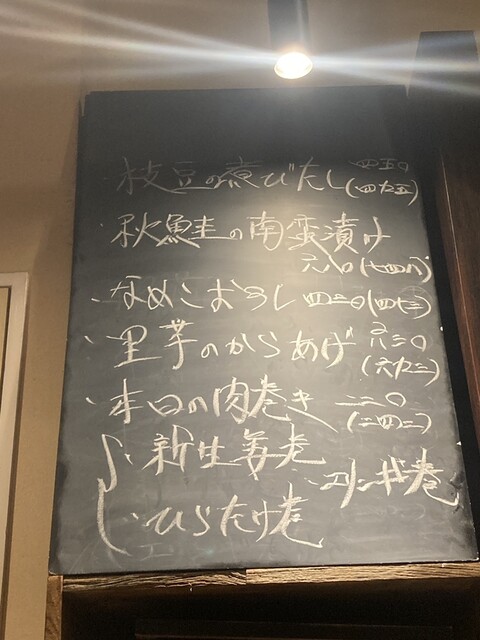 ・枝豆の煮びたし 四五〇
(四九五)
・秋鮭の南蛮漬け
六八〇(七四八)
・なめこおろし 四三〇(四七三)
・里芋のからあげ 六三〇
(六九三)
・本日の肉巻き 二二〇
(二四二)
・新生姜巻
・ひらたけ巻